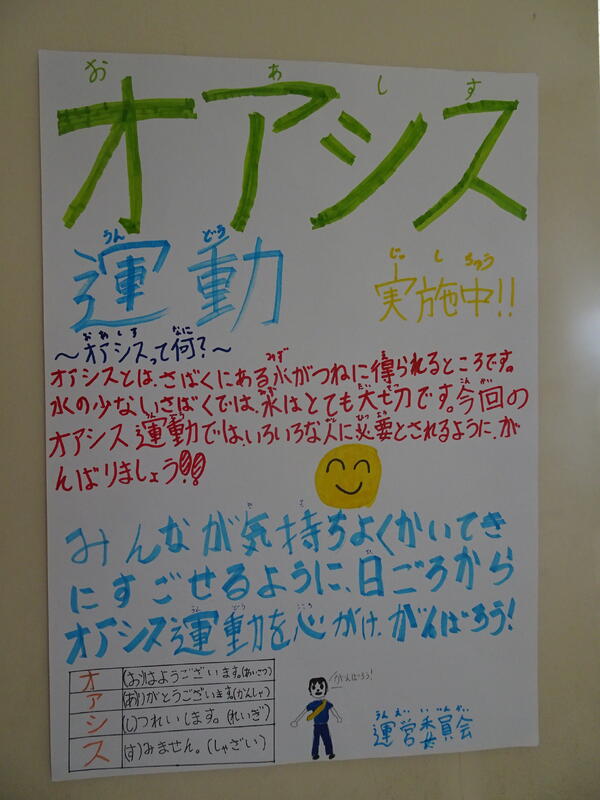 おあしす
オアシス
うんどう
運動
じっしちゅう
実施中!!
おあしす なに
～オアシスって何?～
みず え
オアシスとは、さばくにある水がつねに得られるところです。
水の少ないさばくでは、水はとても大切です。今回の
オアシス運動では、いろいろな人に必要とされるように、が
んばりましょう!!
みんなが気持ちよくかいてき
にすごせるように、日ごろから
オアシス運動を心がけ、がんばろう!
オ (お)はようございます。(あいさつ)
ア (あ)りがとうございます。(かんしゃ)
シ (し)つれいします。(れいぎ)
ス (す)みません。(しゃざい)
がんばろう!
うんえいいいんかい
運営委員会